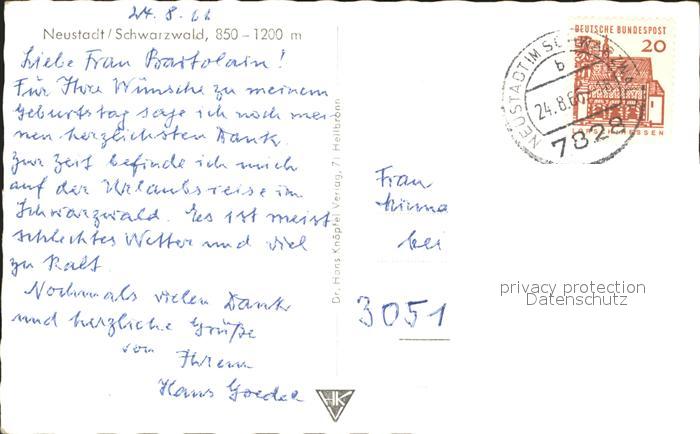 24.8.66
Neustadt/Schwarzwald, 850–1200 m
Liebe Frau Bartolain!
Für Ihre Wünsche zu meinem
Geburtstag sage ich noch mei-
nen herzlichsten Dank.
Zur Zeit befinde ich mich
auf der Urlaubsreise im
Schwarzwald. Es ist meist
schlechtes Wetter und viel
zu kalt.
Nochmals vielen Dank
und herzliche Grüße
von Ihrem
Hans Goedec
Dr. Hans Knöpfel Verlag, 71 Heilbronn
HK
DEUTSCHE BUNDESPOST
20
LORSCH/HESSEN
NEUSTADT IM SCHWARZWALD
b
24.8.66
782
Frau
bei
3051
privacy protection
Datenschutz